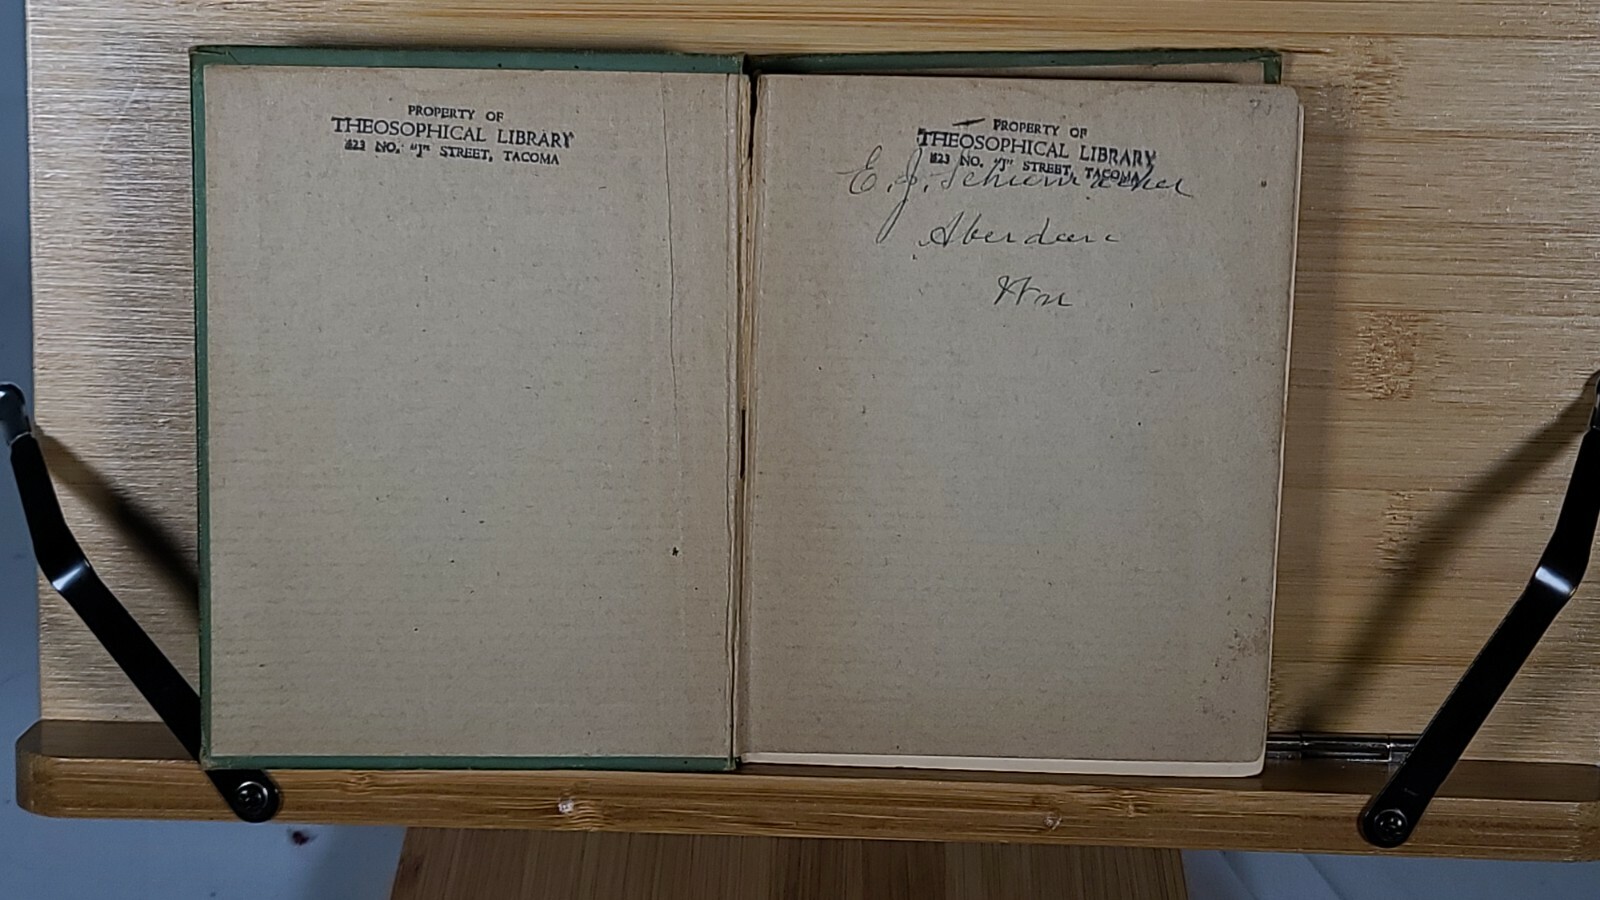 PROPERTY OF
THEOSOPHICAL LIBRARY
823 NO. "J" STREET, TACOMA
PROPERTY OF
THEOSOPHICAL LIBRARY
823 NO. "J" STREET, TACOMA
E. J.
Aberdeen
Wn